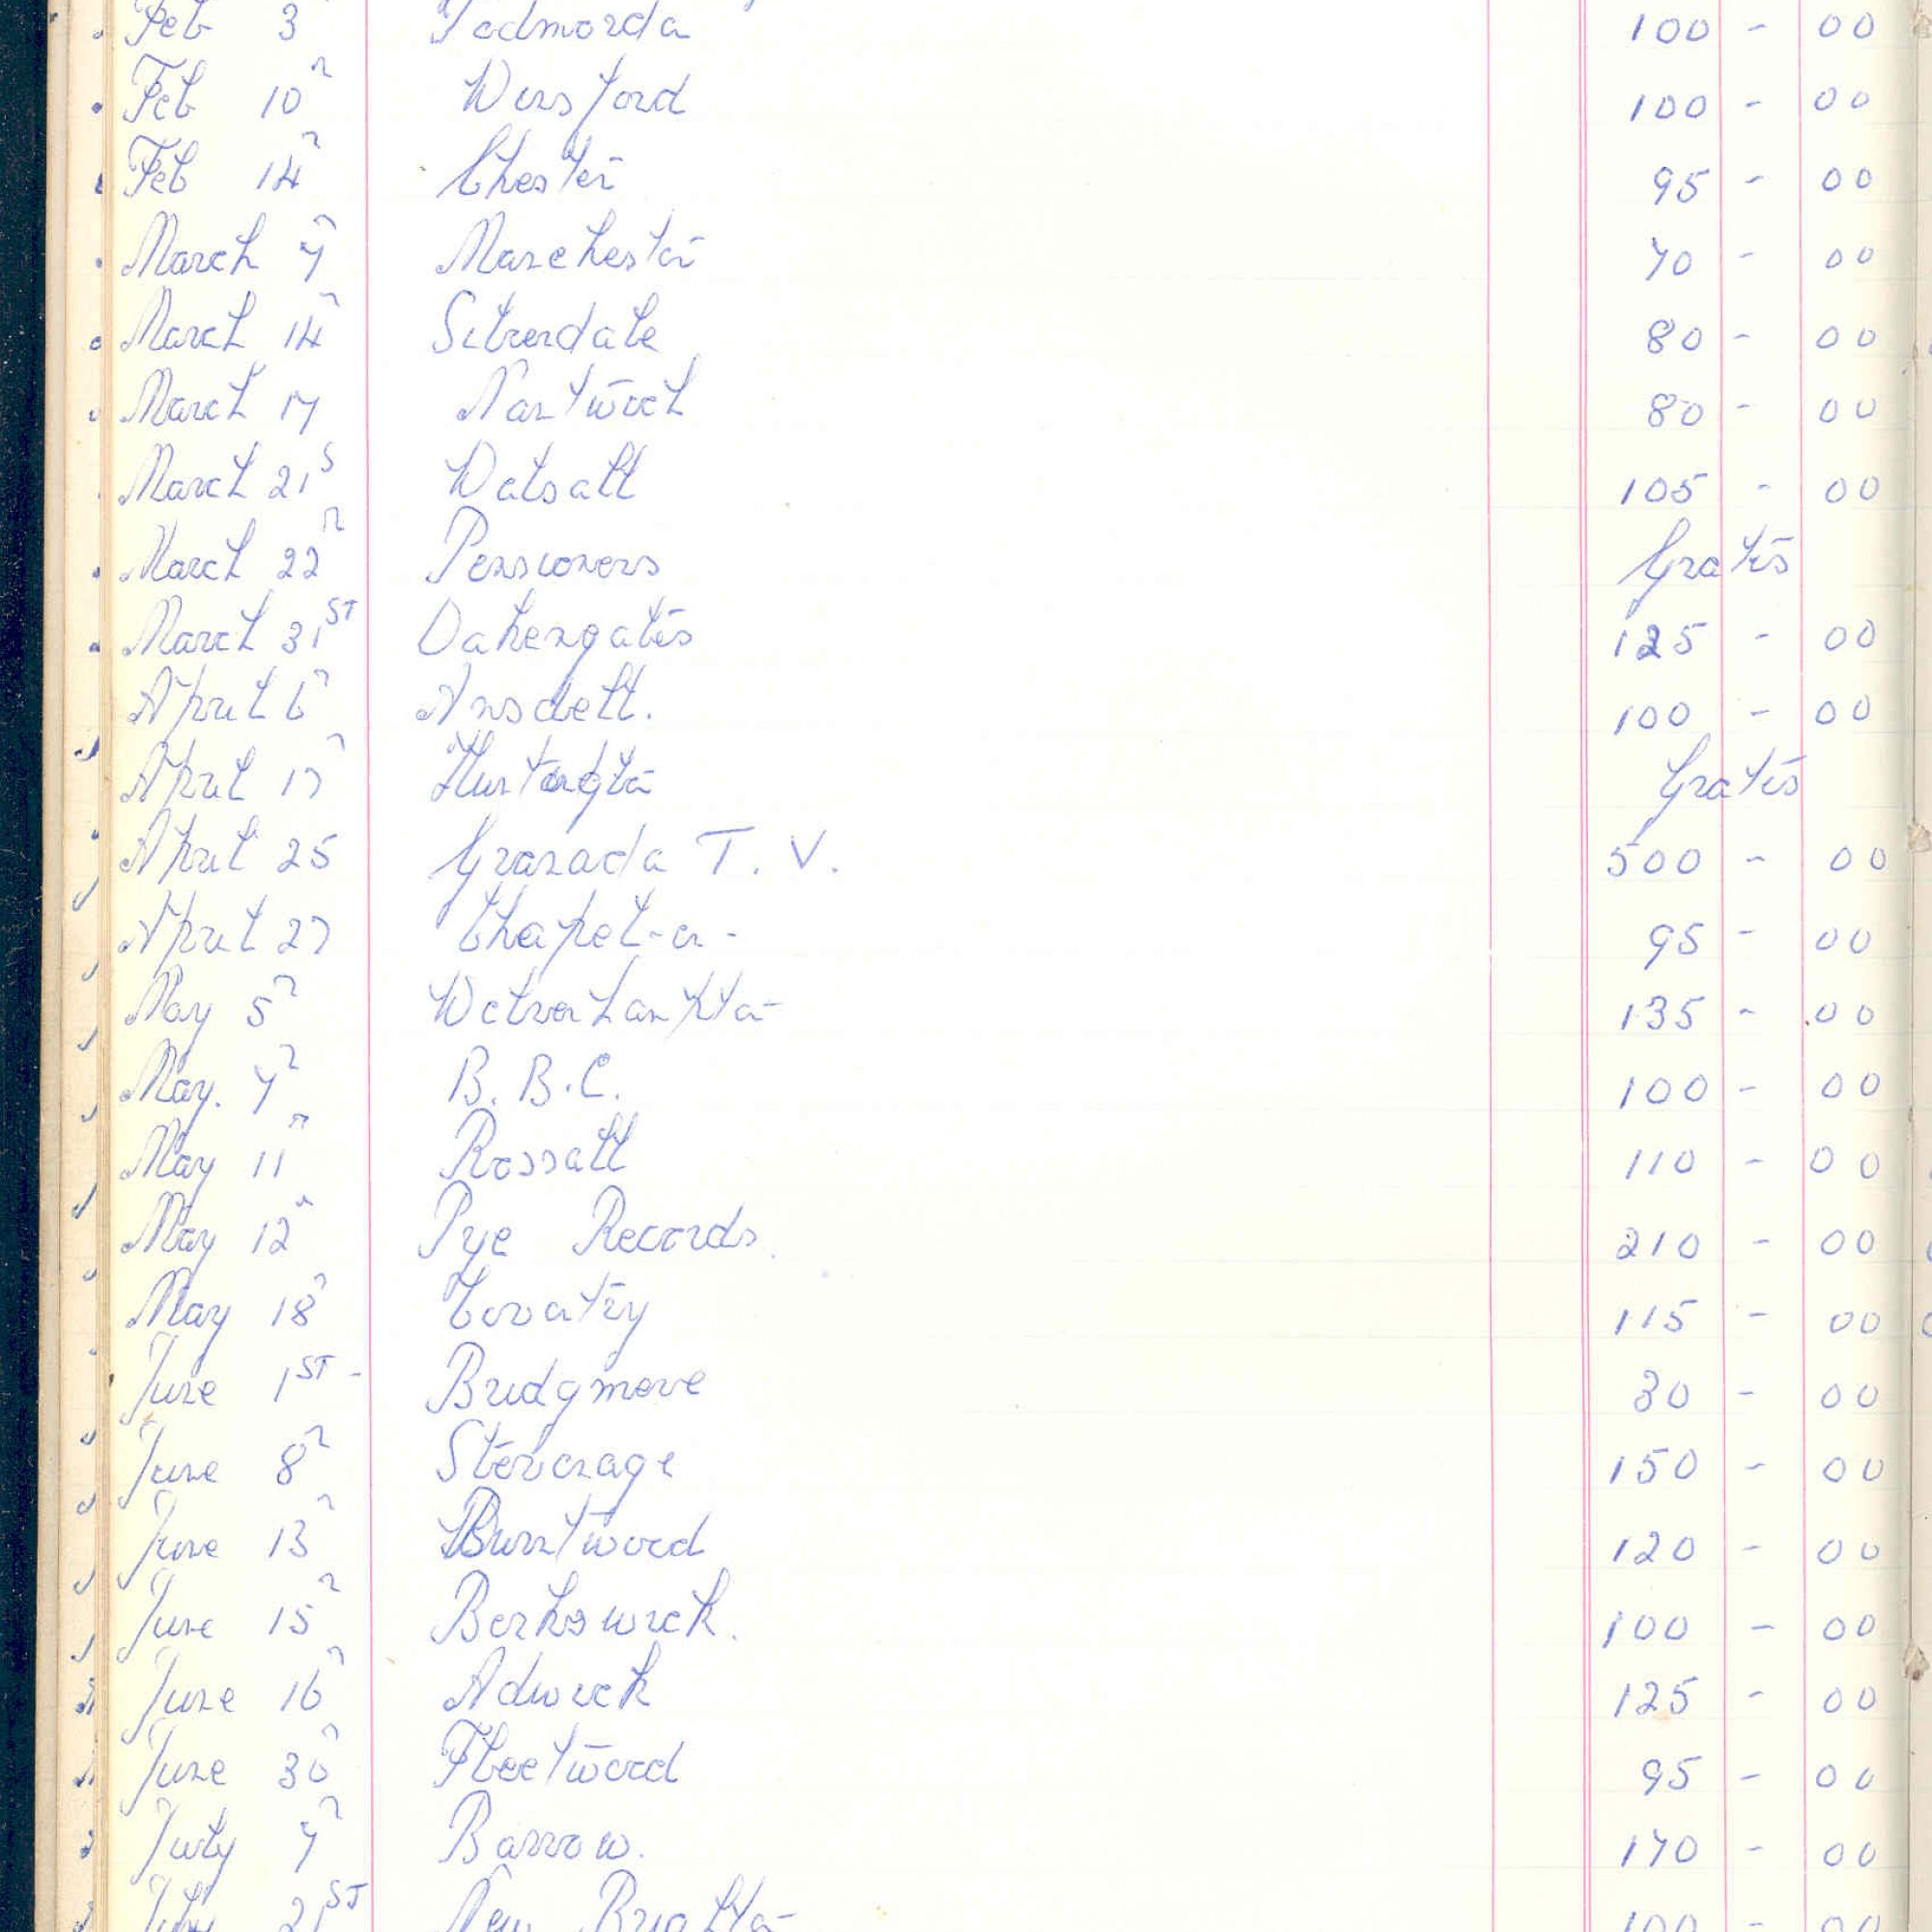 Feb 3 Todmorden 100 - 00
Feb 10th Winsford 100 - 00
Feb 14th Chester 95 - 00
March 7th Manchester 70 - 00
March 14th Silverdale 80 - 00
March 17 Nantwich 80 - 00
March 21s Walsall 105 - 00
March 22n Pensioners Gratis
March 31ST Oakengates 125 - 00
April 6th Ansdell. 100 - 00
April 17th Gratis
April 25 Granada T. V. 500 - 00
April 27 Chapel-en- 95 - 00
May 5th Wolverhampton 135 - 00
May. 7th B. B. C. 100 - 00
May 11th Rossall 110 - 00
May 12th Pye Records. 210 - 00
May 18th Coventry 115 - 00
June 1ST - Bridgmere 30 - 00
June 8th Stevenage 150 - 00
June 13th Burntwood 120 - 00
June 15th Berkswick. 100 - 00
June 16th Adwick 125 - 00
June 30th Fleetwood 95 - 00
July 7th Barrow. 170 - 00
July 21ST New Brighton 100 - 00